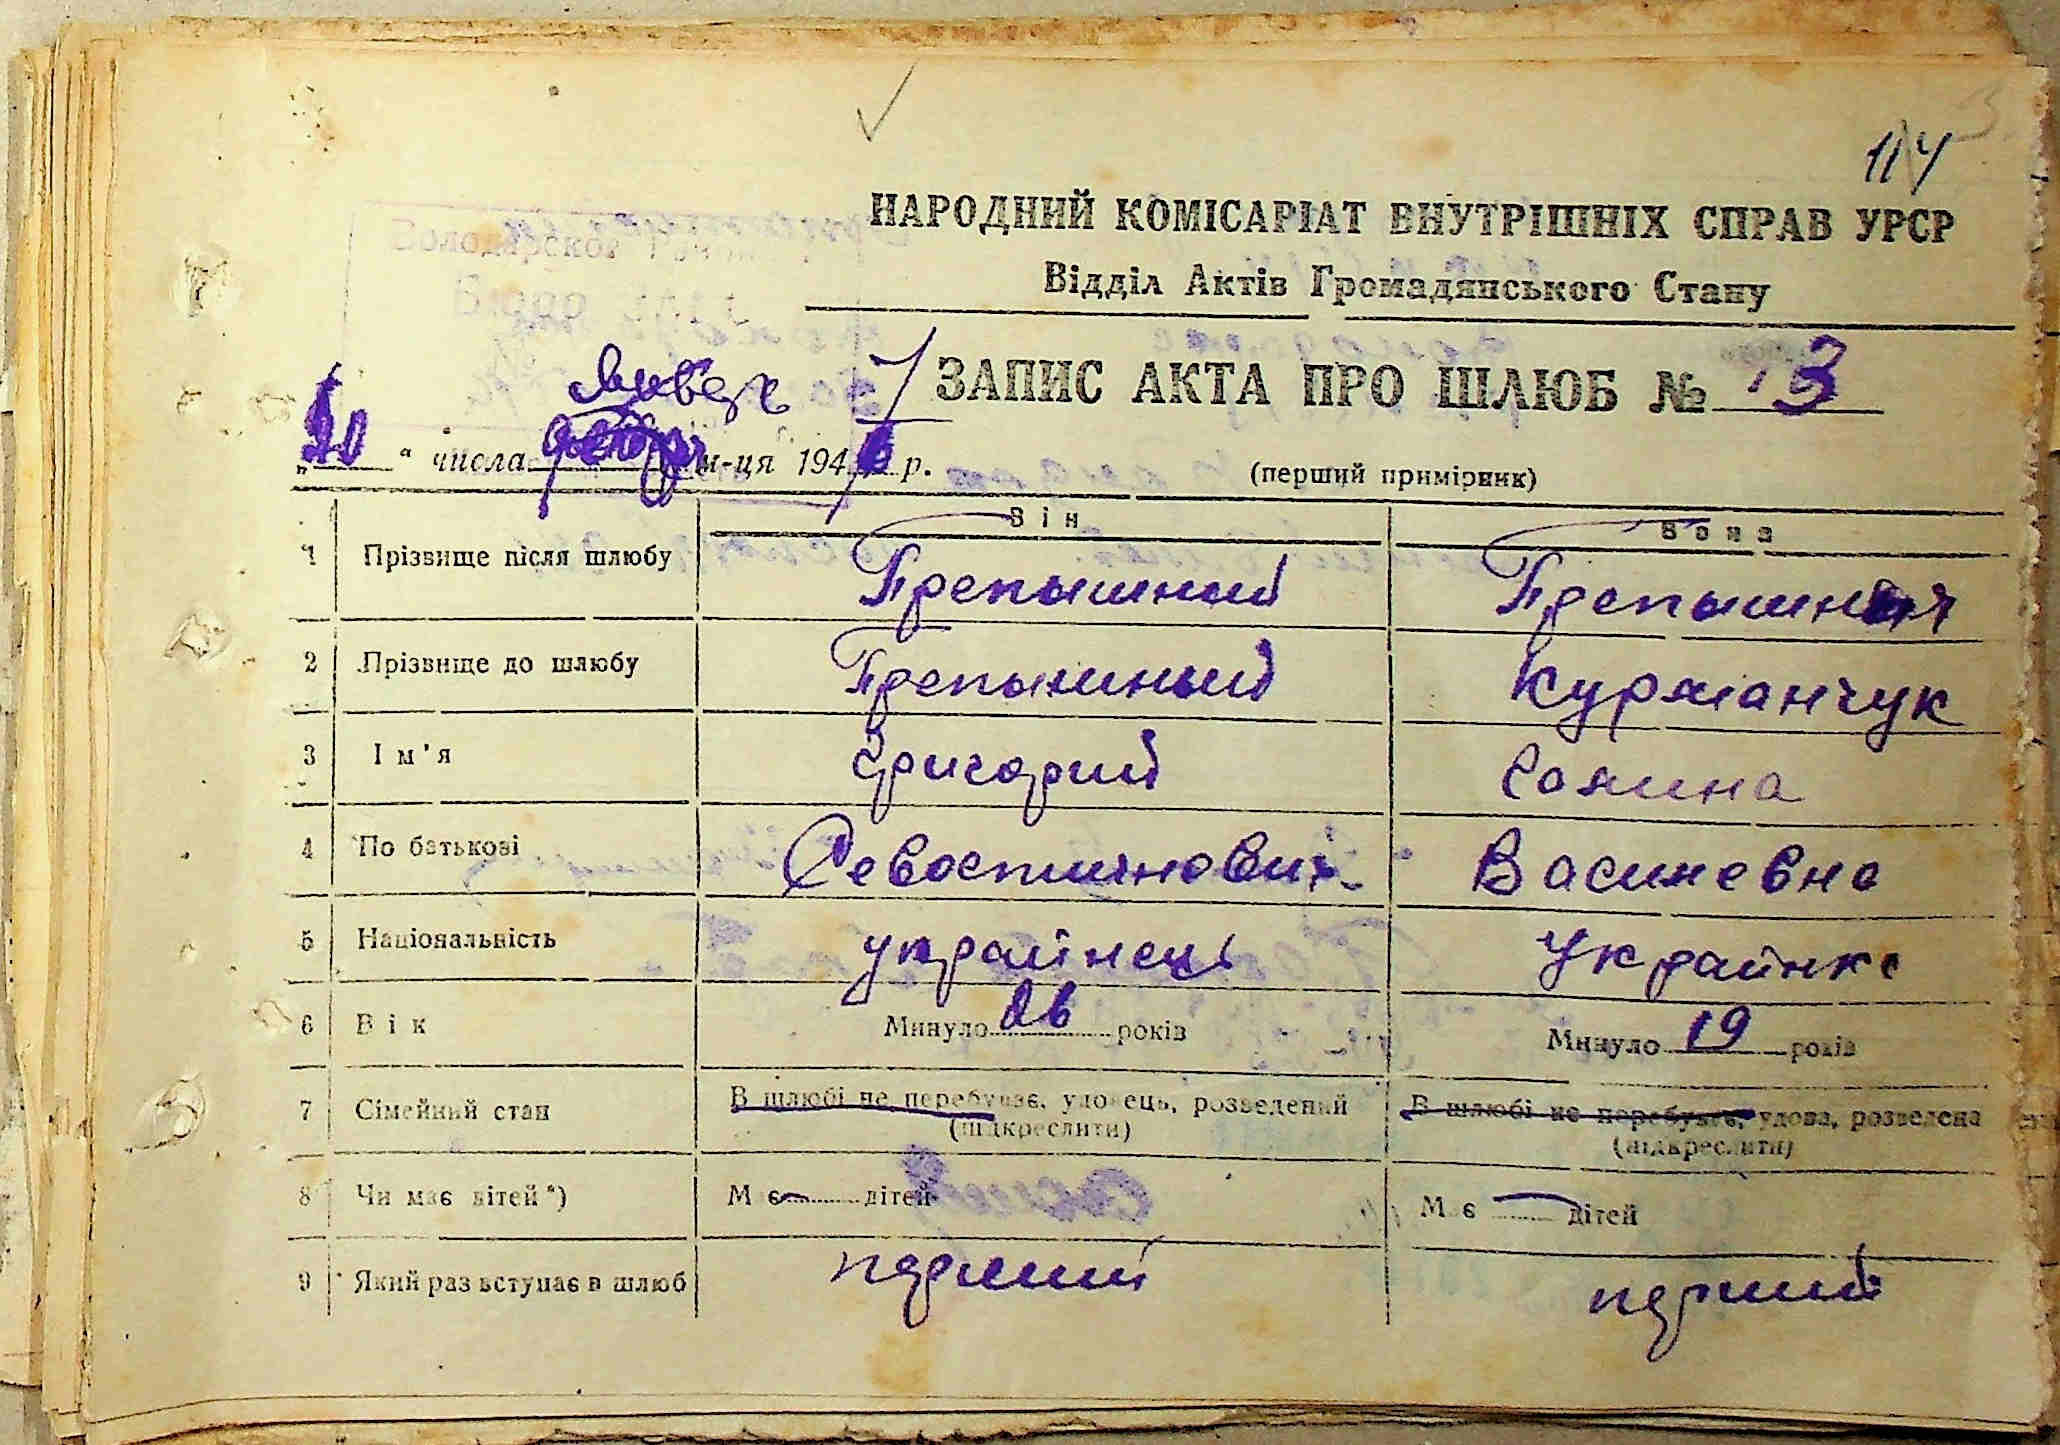 114
НАРОДНИЙ КОМІСАРІАТ ВНУТРІШНІХ СПРАВ УРСР
Відділ Актів Громадянського Стану
ЗАПИС АКТА ПРО ШЛЮБ № 13
„ “ числа м-ця 194 р.
(перший примірник)
Він Вона
1 Прізвище після шлюбу Препышний Препышная
2 Прізвище до шлюбу Препышный Курманчук
3 Ім'я Григорий Галина
4 По батькові Севостиянович Василевна
5 Національність украінець Украінка
6 Вік Минуло 26 років Минуло 19 років
7 Сімейний стан В шлюбі не перебуває, удовець, розведений В шлюбі не перебуває, удова, розведена
(підкреслити) (підкреслити)
8 Чи має дітей*) Має — дітей Має — дітей
9 Який раз вступає в шлюб перший перший